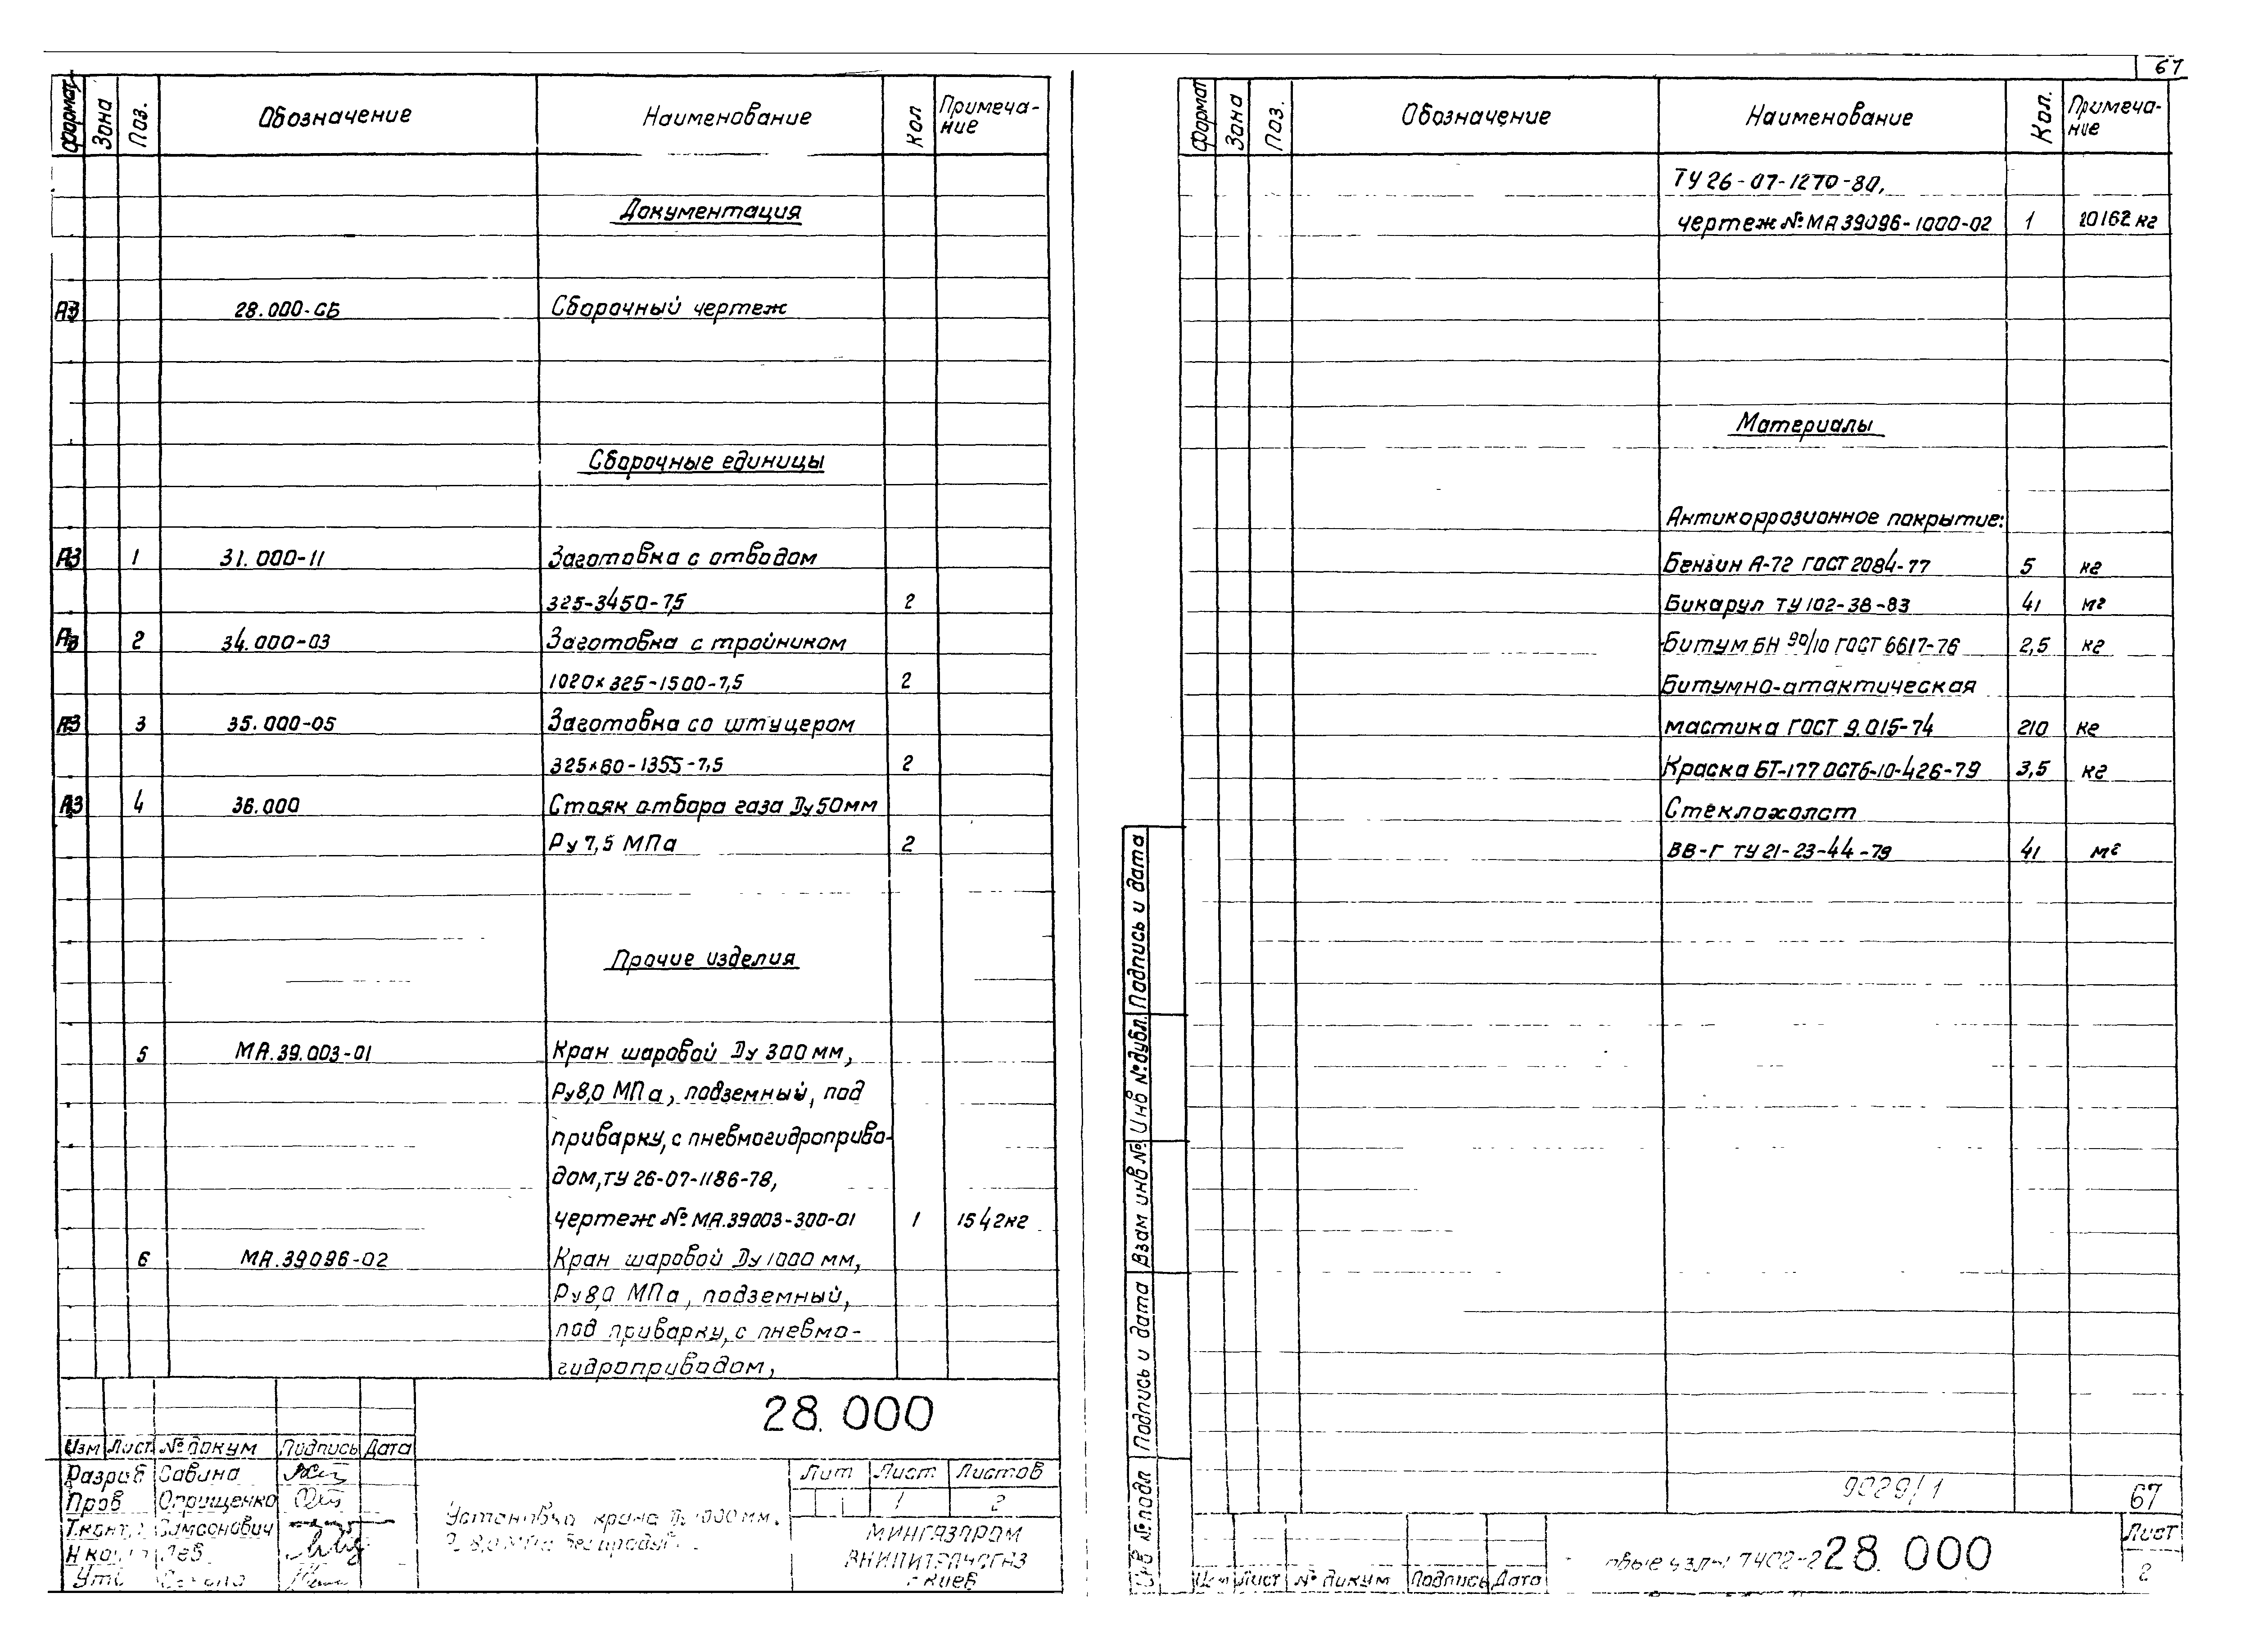 67
Формат Зона Поз. Обозначение Наименование Кол Примеча-
ние
Документация
А3 28.000-СБ Сборочный чертеж
Сборочные единицы
А3 1 31.000-11 Заготовка с отводом
325-3450-7,5 2
А3 2 34.000-03 Заготовка с тройником
1020х325-1500-7,5 2
А3 3 35.000-05 Заготовка со штуцером
325х60-1355-7,5 2
А3 4 36.000 Стояк отбора газа Dу50мм
Ру 7,5 МПа 2
Прочие изделия
5 МА.39.003-01 Кран шаровой Dу 300 мм,
Ру8,0 МПа, подземный, под
приварку, с пневмогидроприво-
дом, ТУ 26-07-1186-78,
чертеж № МА.39003-300-01 1 1542кг
6 МА.39096-02 Кран шаровой Dу 1000 мм,
Ру8,0 МПа, подземный,
под приварку, с пневмо-
гидроприводом,
28.000
Изм Лист № докум Подпись Дата
Разраб Савина
Пров Оприщенко
Т.конт. Самсонович
Н.ко Лев
Утв
Установка крана Dу 1000мм,
Лит Лист Листов
1 2
МИНГАЗПРОМ
ВНИПИТРАНСГАЗ
г Киев
Формат Зона Поз. Обозначение Наименование Кол. Примеча-
ние
ТУ 26-07-1270-80,
чертеж № МА 39096-1000-02 1 10162 кг
Материалы
Антикоррозионное покрытие:
Бензин А-72 ГОСТ 2084-77 5 кг
Бикарул ТУ 102-38-83 41 м²
Битум БН 90/10 ГОСТ 6617-76 2,5 кг
Битумно-атактическая
мастика ГОСТ 9.015-74 210 кг
Краска БТ-177 ОСТ6-10-426-79 3,5 кг
Стеклохолст
ВВ-Г ТУ 21-23-44-79 41 м²
Подпись и дата
Инв № дубл.
Взам инв №
Подпись и дата
Инв № подл
9029/1 67
Изм Лист № докум Подпись Дата
28.000
Лист
2